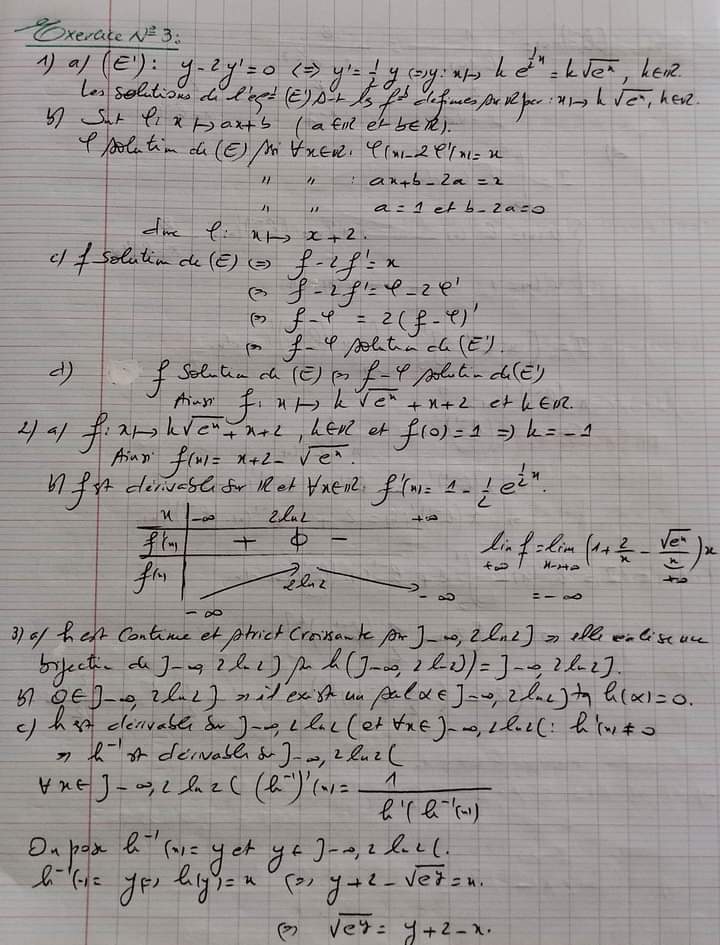 Exercice N° 3:
1) a) (E'): y - 2y' = 0 <=> y' = 1/2 y <=> y: x ↦ k e^{1/2 x} = k√e^x, k∈ℝ.
Les solutions de l'éq (E') st les f définies sur ℝ par: x ↦ k√e^x, k∈ℝ.
b) Soit φ: x ↦ ax+b (a∈ℝ et b∈ℝ).
φ solution de (E) ssi ∀x∈ℝ: φ(x) - 2φ'(x) = x
" " : ax+b-2a = x
" " a = 1 et b-2a = 0
donc φ: x ↦ x+2.
c) f solution de (E) <=> f - 2f' = x
<=> f - 2f' = φ - 2φ'
<=> f - φ = 2(f - φ)'
<=> f - φ solution de (E').
d) f solution de (E) <=> f - φ solution de (E')
Ainsi f: x ↦ k√e^x + x + 2 et k∈ℝ.
2) a) f: x ↦ k√e^x + x + 2, k∈ℝ et f(0) = 1 => k = -1
Ainsi f(x) = x + 2 - √e^x.
b) f est dérivable sur ℝ et ∀x∈ℝ: f'(x) = 1 - 1/2 e^{1/2 x}.
x -∞ 2ln2 +∞
f'(x) + 0 -
f(x) -∞ 2ln2 -∞
lim f +∞ = lim x→+∞ (1 + 2/x - √e^x / x) x
+∞
= -∞
3) a) h est continue et strict croissante sur ]-∞, 2ln2] => elle réalise une
bijection de ]-∞, 2ln2] sur h(]-∞, 2ln2]) = ]-∞, 2ln2].
b) 0∈]-∞, 2ln2] => il existe un seul α∈]-∞, 2ln2] tq h(α) = 0.
c) h est dérivable sur ]-∞, 2ln2[ et ∀x∈]-∞, 2ln2[: h'(x) ≠ 0
=> h^{-1} est dérivable sur ]-∞, 2ln2[
∀x∈]-∞, 2ln2[ (h^{-1})'(x) = 1 / h'(h^{-1}(x))
On pose h^{-1}(x) = y et y∈]-∞, 2ln2[.
h^{-1}(x) = y <=> h(y) = x <=> y + 2 - √e^y = x.
<=> √e^y = y + 2 - x.